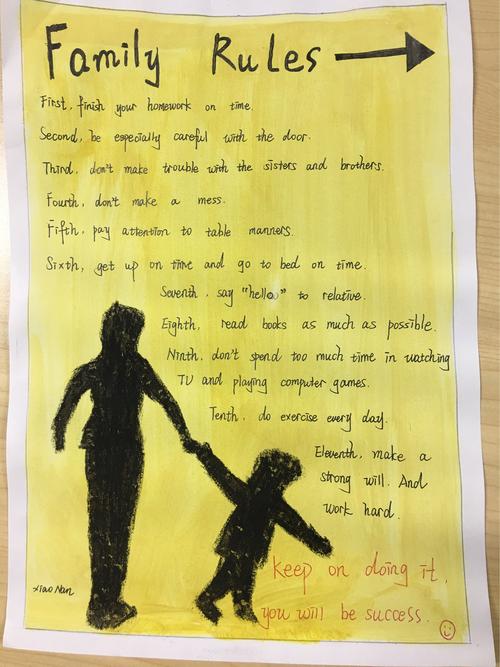 Family Rules
First, finish your homework on time.
Second, be especially careful with the door.
Third, don't make trouble with the sisters and brothers.
Fourth, don't make a mess.
Fifth, pay attention to table manners.
Sixth, get up on time and go to bed on time.
Seventh, say "hello" to relative.
Eighth, read books as much as possible.
Ninth, don't spend too much time in watching
TV and playing computer games.
Tenth, do exercise every day.
Eleventh, make a
strong will. And
work hard.
Keep on doing it,
you will be success.
xiao Nan